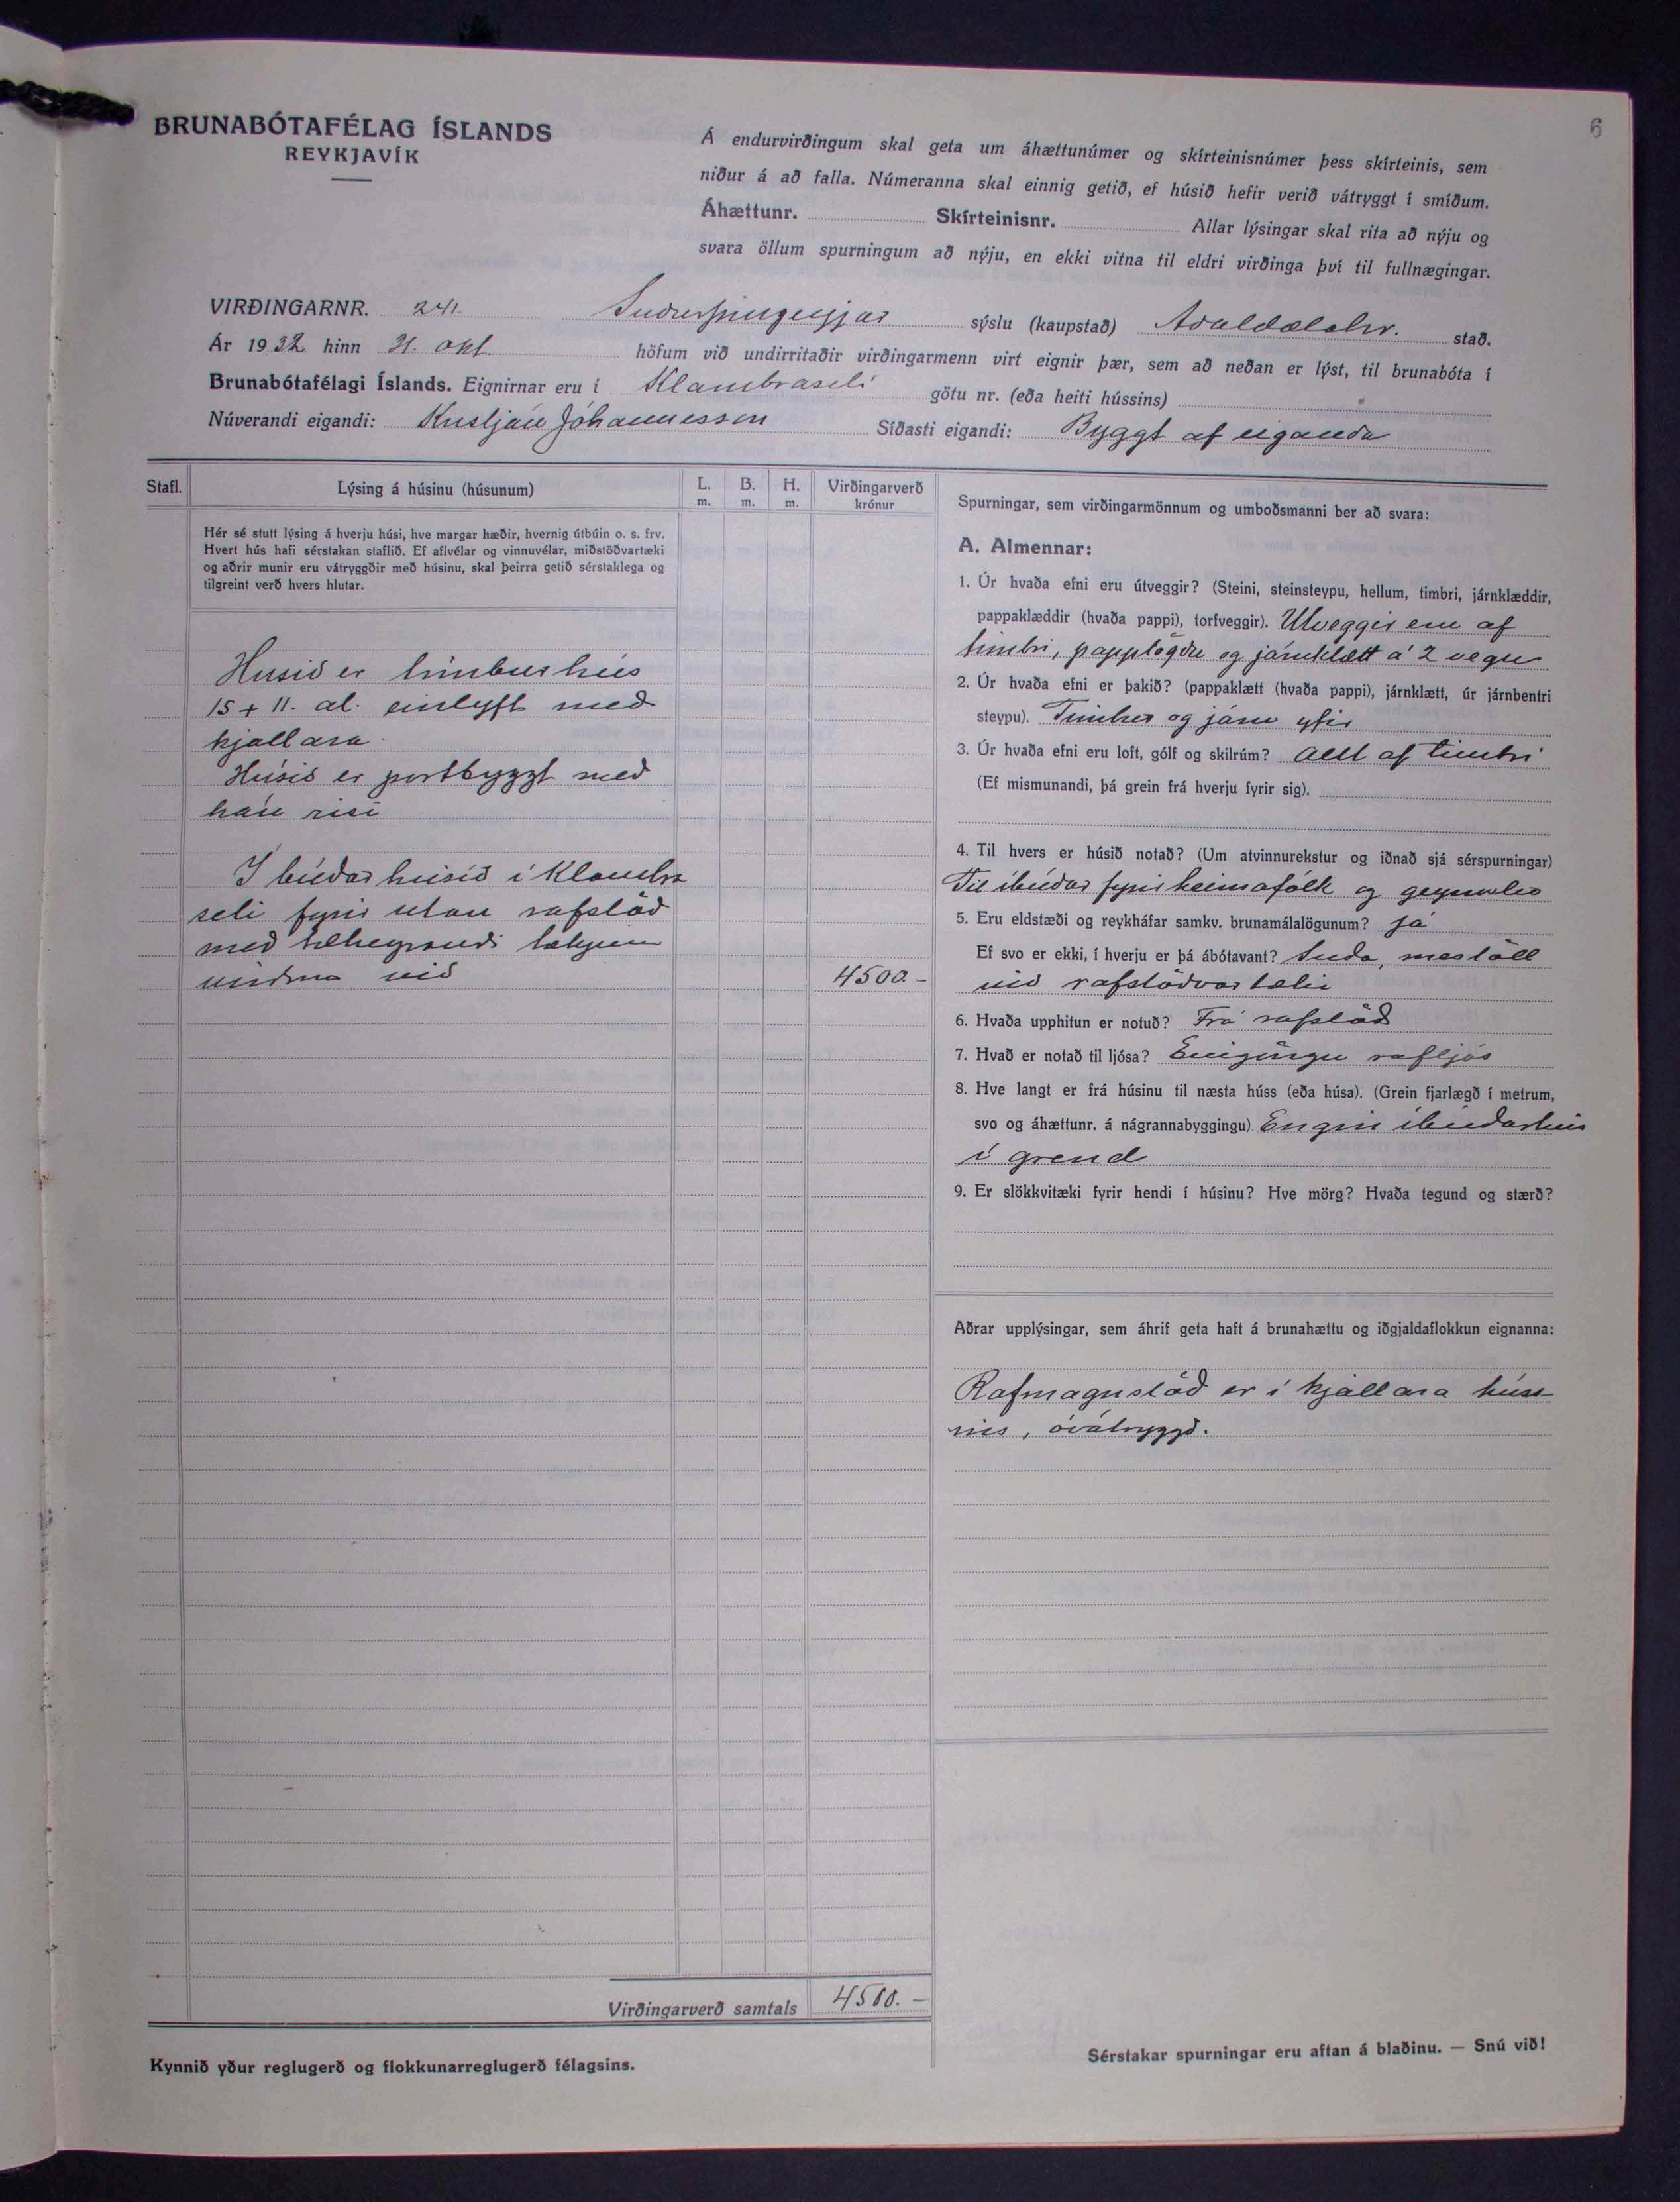 6
BRUNABÓTAFÉLAG ÍSLANDS
REYKJAVÍK
Á endurvirðingum skal geta um áhættunúmer og skírteinisnúmer þess skírteinis, sem
niður á að falla. Númeranna skal einnig getið, ef húsið hefir verið vátryggt í smíðum.
Áhættunr. Skírteinisnr. Allar lýsingar skal rita að nýju og
svara öllum spurningum að nýju, en ekki vitna til eldri virðinga því til fullnægingar.
VIRÐINGARNR. 241. Suðurþingeyjar sýslu (kaupstað) Aðaldælahr. stað.
Ár 1932 hinn 31. okt. höfum við undirritaðir virðingarmenn virt eignir þær, sem að neðan er lýst, til brunabóta í
Brunabótafélagi Íslands. Eignirnar eru í Klambraseli götu nr. (eða heiti hússins)
Núverandi eigandi: Kristján Jóhannesson Síðasti eigandi: Byggt af eiganda
Stafl. Lýsing á húsinu (húsunum) L. m. B. m. H. m. Virðingarverð krónur
Hér sé stutt lýsing á hverju húsi, hve margar hæðir, hvernig útbúin o. s. frv.
Hvert hús hafi sérstakan staflið. Ef aflvélar og vinnuvélar, miðstöðvartæki
og aðrir munir eru vátryggðir með húsinu, skal þeirra getið sérstaklega og
tilgreint verð hvers hlutar.
Husið er timburhús
15 + 11. al. einlyft með
kjallara.
Húsið er portbyggt með
háu risi
Íbúðarhúsið í Klambra
seli fyrir utan rafstöð
með tilheyrandi
við 4500.-
Virðingarverð samtals 4500.-
Kynnið yður reglugerð og flokkunarreglugerð félagsins.
Spurningar, sem virðingarmönnum og umboðsmanni ber að svara:
A. Almennar:
1. Úr hvaða efni eru útveggir? (Steini, steinsteypu, hellum, timbri, járnklæddir,
pappaklæddir (hvaða pappi), torfveggir). Útveggir eru af
timbri, papplögðu og járnklætt á 2 vegu
2. Úr hvaða efni er þakið? (pappaklætt (hvaða pappi), járnklætt, úr járnbentri
steypu). Timbur og járn yfir
3. Úr hvaða efni eru loft, gólf og skilrúm? Allt af timbri
(Ef mismunandi, þá grein frá hverju fyrir sig).
4. Til hvers er húsið notað? (Um atvinnurekstur og iðnað sjá sérspurningar)
Til íbúðar fyrir heimafólk og geymslu
5. Eru eldstæði og reykháfar samkv. brunamálalögunum? já
Ef svo er ekki, í hverju er þá ábótavant? Suða, mestöll
við rafstöðvartæki
6. Hvaða upphitun er notuð? Frá rafstöð
7. Hvað er notað til ljósa? Eingöngu rafljós
8. Hve langt er frá húsinu til næsta húss (eða húsa). (Grein fjarlægð í metrum,
svo og áhættunr. á nágrannabyggingu) Engin íbúðarhús
í grend
9. Er slökkvitæki fyrir hendi í húsinu? Hve mörg? Hvaða tegund og stærð?
Aðrar upplýsingar, sem áhrif geta haft á brunahættu og iðgjaldaflokkun eignanna:
Rafmagnstöð er í kjallara húss-
ins, óvátryggð.
Sérstakar spurningar eru aftan á blaðinu. — Snú við!